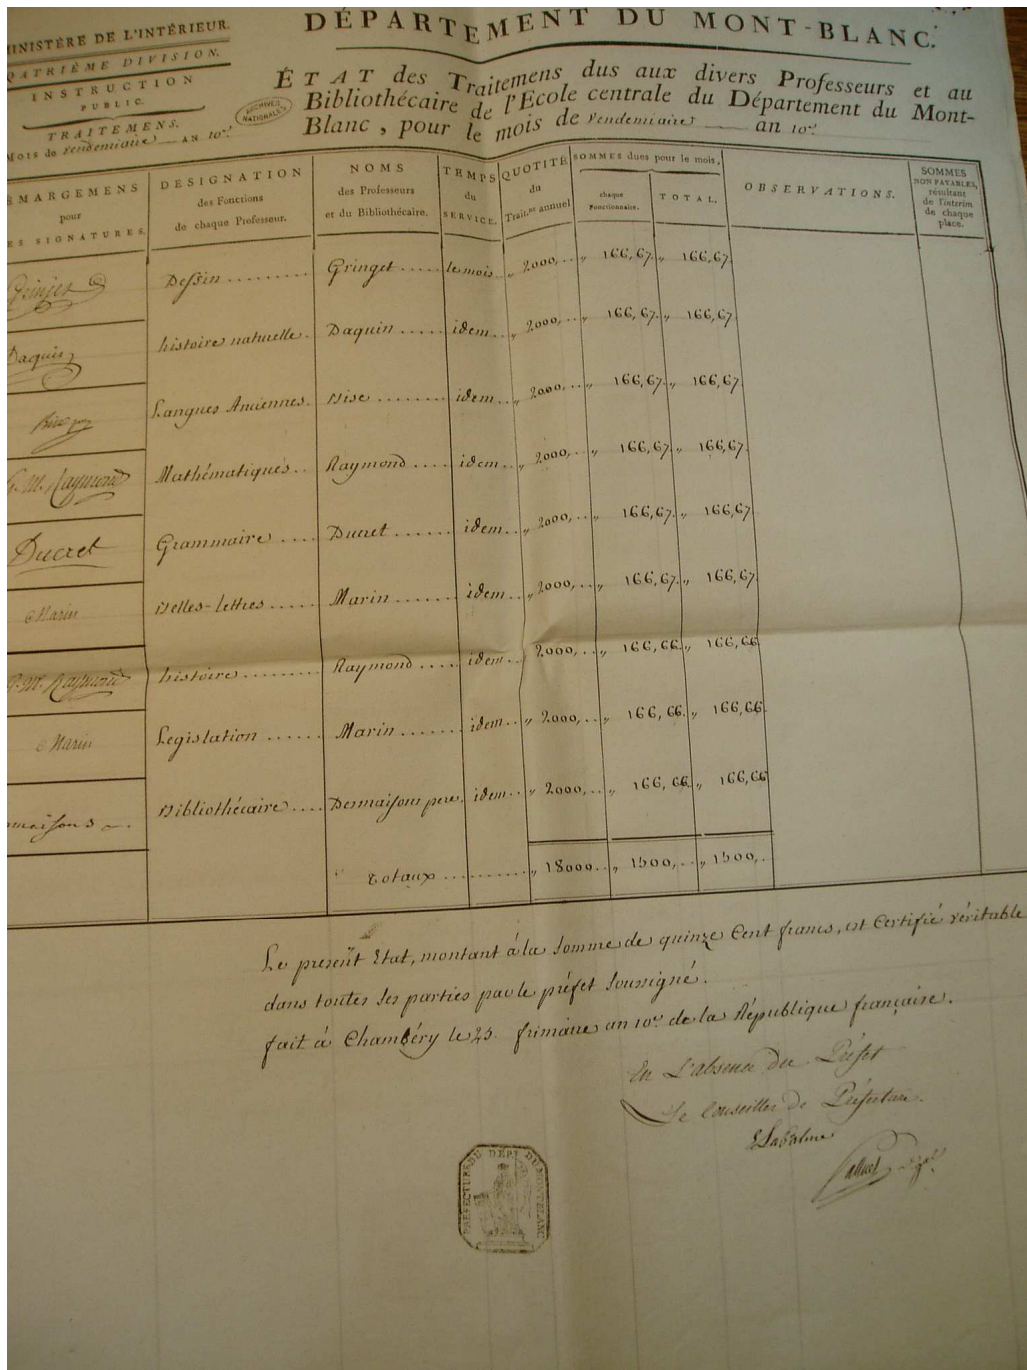 MINISTÈRE DE L'INTÉRIEUR.
QUATRIÈME DIVISION.
INSTRUCTION
PUBLIC.
TRAITEMENS.
Mois de vendemiaire AN 10e
ARCHIVES NATIONALES
DÉPARTEMENT DU MONT-BLANC.
ÉTAT des Traitemens dus aux divers Professeurs et au
Bibliothécaire de l'École centrale du Département du Mont-
Blanc, pour le mois de vendemiaire an 10e
ÉMARGEMENS pour LES SIGNATURES. DESIGNATION des Fonctions de chaque Professeur. NOMS des Professeurs et du Bibliothécaire. TEMPS du SERVICE. QUOTITÉ du Trait.nt annuel SOMMES dues pour le mois, chaque Fonctionnaire. TOTAL. OBSERVATIONS. SOMMES NON PAYABLES, résultant de l'interim de chaque place.
Gringet Dessin ........ Gringet ..... le mois .. „ 2000,... „ 166,67. „ 166,67.
Daquin histoire naturelle. Daquin ..... idem.. „ 2000,... „ 166,67. „ 166,67.
Bise Langues Anciennes. Bise ........ idem.. „ 2000,... „ 166,67. „ 166,67.
G. M. Raymond Mathématiques.. Raymond .... idem.. „ 2000,... „ 166,67. „ 166,67.
Ducret Grammaire .... Ducret ...... idem.. „ 2000,... „ 166,67. „ 166,67.
Marin Belles-lettres ..... Marin ....... idem.. „ 2000,... „ 166,67. „ 166,67.
G. M. Raymond histoire ........ Raymond ..... idem.. 2000,... „ 166,66. „ 166,66.
Marin Legislation ...... Marin ....... idem.. „ 2000,... „ 166,66. „ 166,66.
maisons Bibliothécaire .... Desmaisons pere. idem.. „ 2000,... „ 166,66. „ 166,66
Totaux .......... „ 18000.. „ 1500,.. „ 1500,.
Le present Etat, montant à la somme de quinze Cent francs, est Certifié véritable
dans toutes ses parties par le préfet soussigné.
fait à Chambéry le 25. frimaire an 10e de la République française.
En L'absence du Préfet
Le Conseiller de Préfecture.
PREFECTURE DU DÉPT. DU MONTBLANC